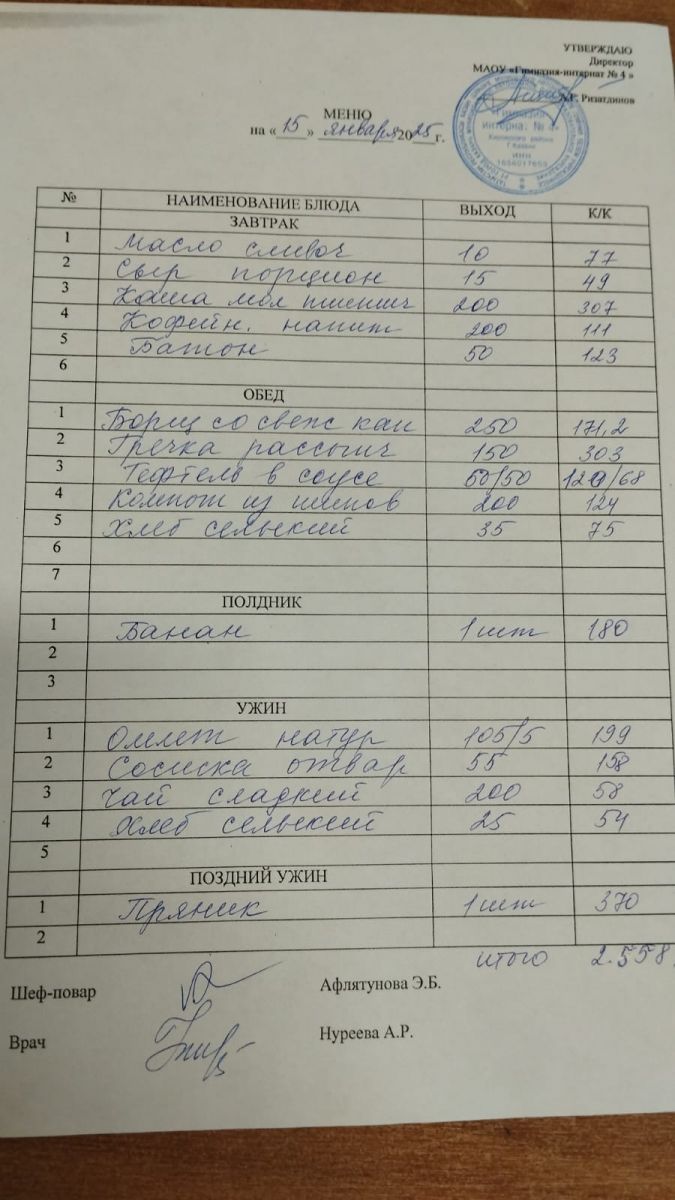 УТВЕРЖДАЮ
Директор
МАОУ «Гимназия-интернат № 4 »
А.Г. Ризатдинов
«Гимназия-
интернат № 4»
Кировского района
г.Казани
ИНН
МЕНЮ
на «15» января 2025г.
№ НАИМЕНОВАНИЕ БЛЮДА ВЫХОД К/К
ЗАВТРАК
1 Масло сливоч 10 77
2 Сыр порцион 15 49
3 Каша мол пшенич 200 307
4 Кофейн. напит 200 111
5 Батон 50 123
6
ОБЕД
1 Борщ со свеж кап 250 171,2
2 Гречка рассыпч 150 303
3 Тефтель в соусе 50/50 129/68
4 Компот из шипов 200 124
5 Хлеб сельский 35 75
6
7
ПОЛДНИК
1 Банан 1 шт 180
2
3
УЖИН
1 Омлет натур 105/5 199
2 Сосиска отвар 55 158
3 Чай сладкий 200 58
4 Хлеб сельский 25 54
5
ПОЗДНИЙ УЖИН
1 Пряник 1 шт 370
2
итого 2.558
Шеф-повар Афлятунова Э.Б.
Врач Нуреева А.Р.